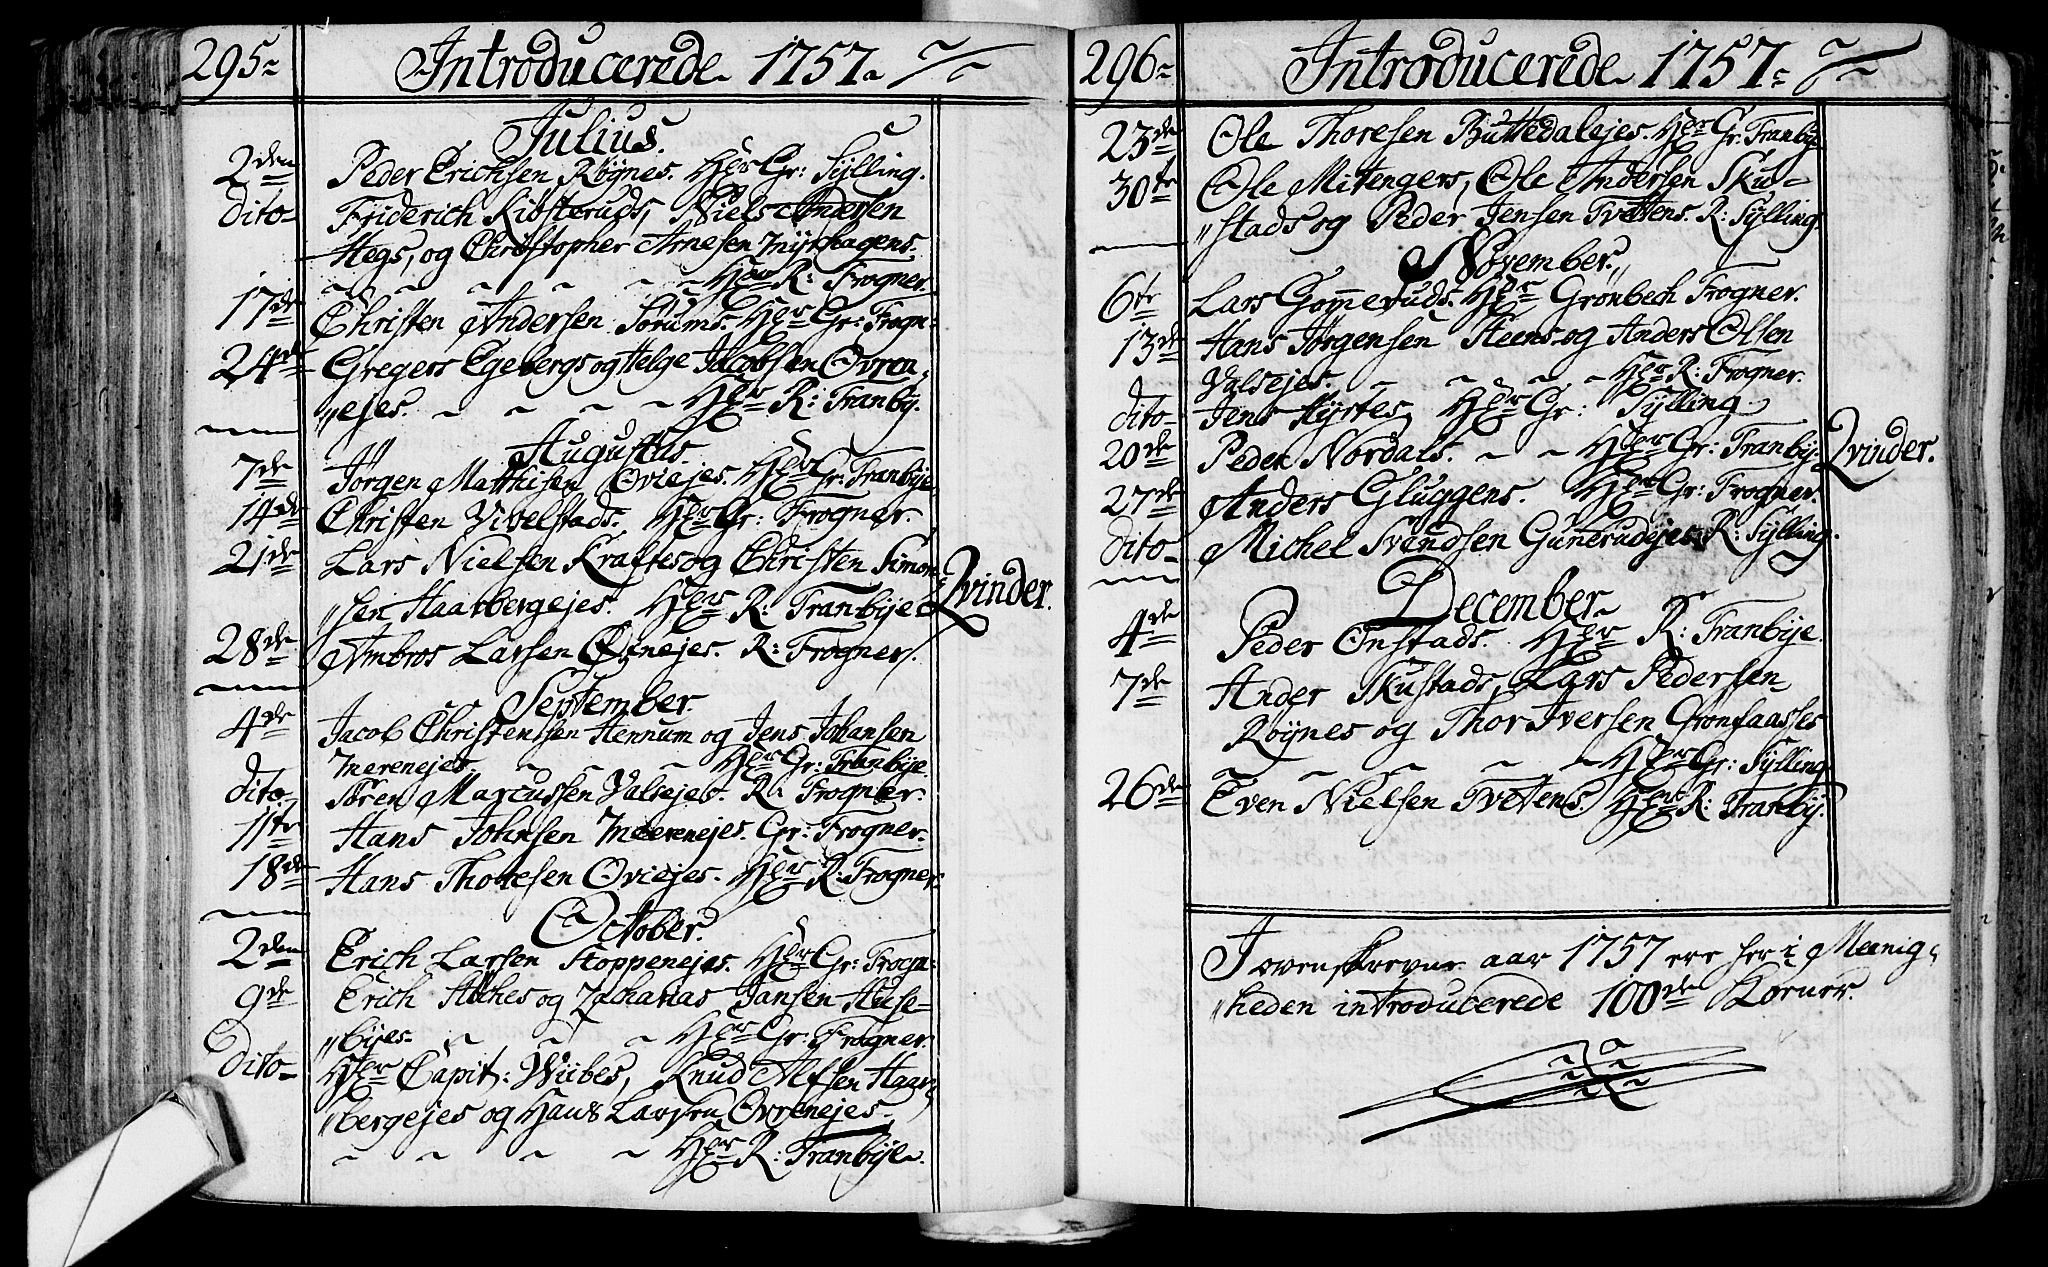 295
Introducerede 1757.
Julius.
2den Peder Erichsen Røynes. Hꝛ Gr: Sylling.
dito Friderich Kibsteruds, Niels Andersen
Hegs, og Christopher Arnesen Myrhagens.
R: Frogner.
17de Christen Andersen Sørums. Gr: Frogn:
24de Gregers Egebergs og Helge Jacobsen Ovren
ejes. R: Tranby.
Augustus
7de Jørgen Matthisen Oviejes. Gr: Tranbye
14de Christen Vivelstads. Gr: Frogner.
21de Lars Nielsen Krafts og Christen Simon
sen Haarbergejes. R: Tranbye
28de Ambros Larsen Ovnejes. R: Frogner.
September
4de Jacob Christensen Hennum og Jens Johansen
Merenejes. Gr: Tranbye.
dito Søren Marcussen Valsejes. R: Frogner.
11te Hans Johnsen Meerenejes. Gr: Frogner.
18de Hans Thoresen Oviejes. R: Frogner.
October.
2den Erich Larsen Stoppenejes. Gr: Frogn:
9de Erich og Zacharias Jansen Huse-
byes. Gr: Frogner.
Dito Capit: Wiibes, Knud Alfsen Haar
bergejes og Hans Larsen Ovrenejes.
R: Tranbye.
Qvinder.
296
Introducerede 1757
23de Ole Thoresen Buttedalejes. Gr: Tranby
30te Ole Mitengers, Ole Andersen Sku-
stads og Peder Jensen Tvettens. R: Sylling.
November.
6te Lars Gommeruds. Grønbech Frogner.
13de Hans Jørgensen Steens og Anders Olsen
Valsejes. R: Frogner.
dito Jens Kyrtes, Gr: Sylling
20de Peder Nordals. Gr: Tranby.
27de Anders Gluggens. Gr: Frogner.
Dito Michel Svendsen Gunerudejes. R: Sylling.
December.
4de Peder Onstads. R: Tranbye.
7de Ander Skustads, Lars Pedersen
Røynes og Thor Iversen Gronsaasses
Gr: Sylling
26de Even Nielsen Tvetens. R: Tranby.
Qvinder.
I ovenskrevne aar 1757 ere her i Meenig
heden introducerede 100de Koener.